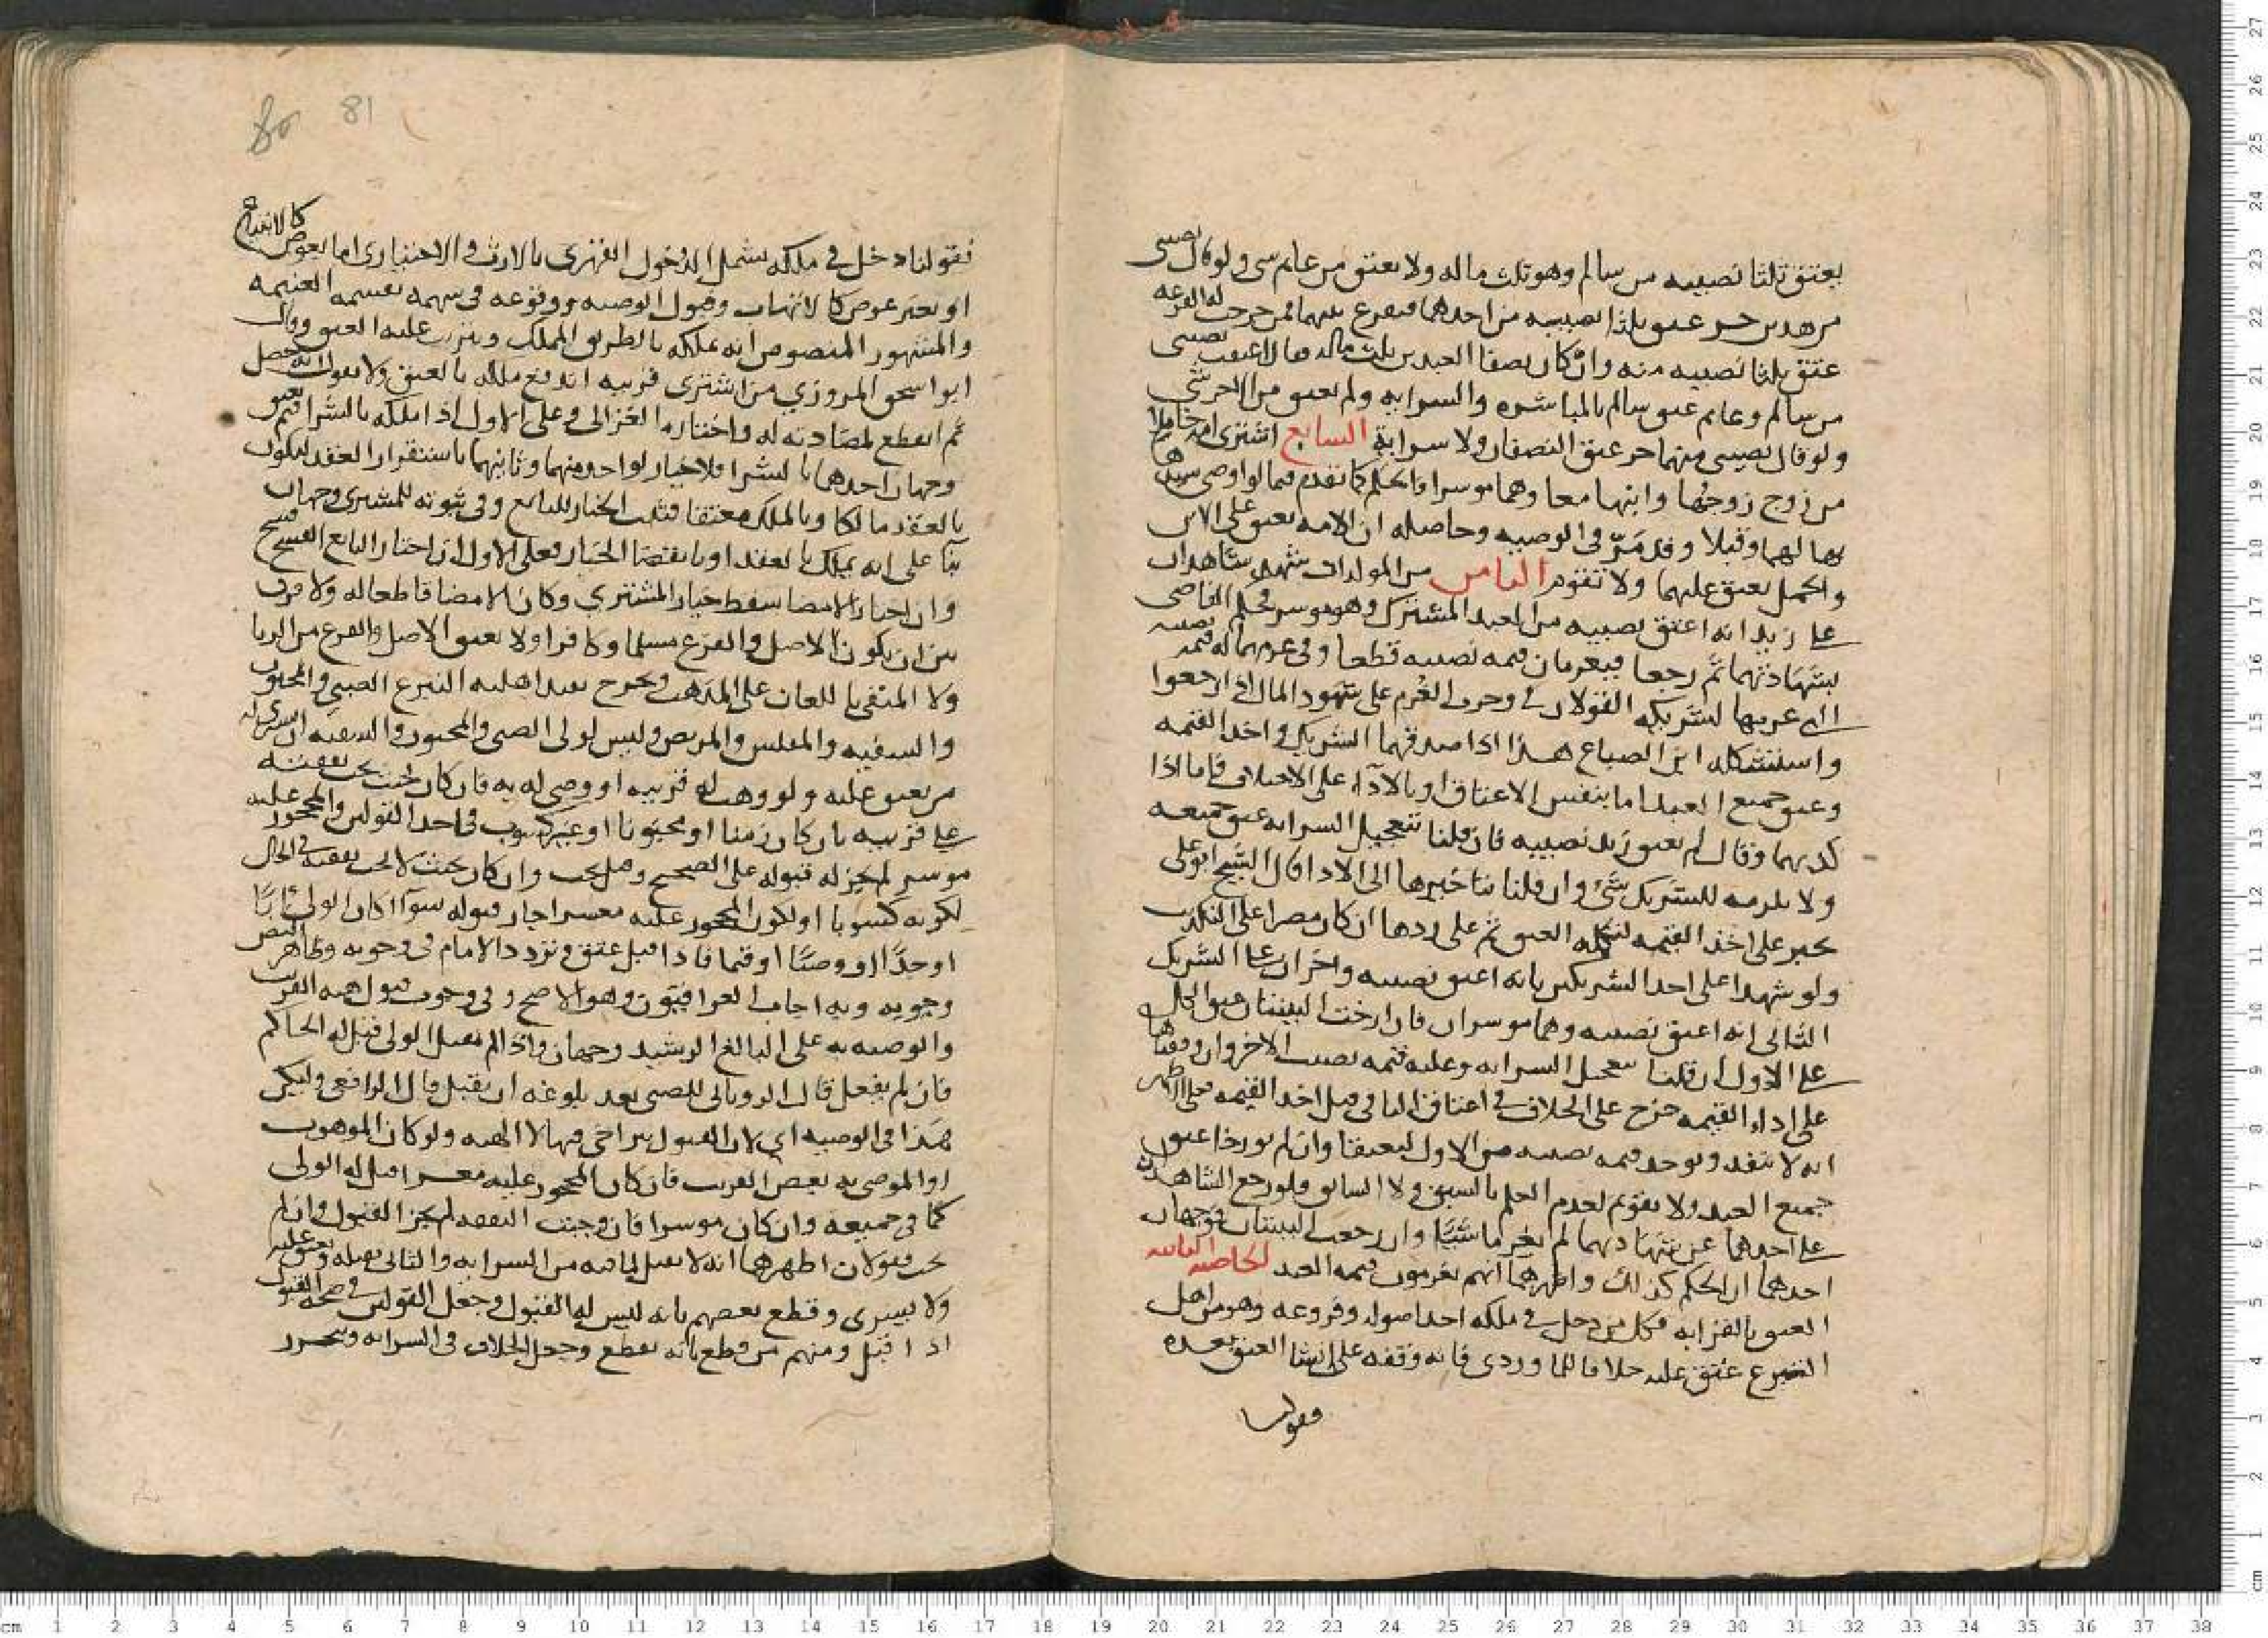 يعتق ثلثا نصيبه من سالم وهو ثلث ماله ولا يعتق من غانم شي ولو قال نصيبي
من هدين حر عتق ثلثا نصيبه من احدهما فيقرع بينهما فمن خرجت له القرعه
عتق ثلثا نصيبه منه وان كان نصفا العبدين ثلث ماله فقال اعتقت نصيبي
من سالم وغانم عتق سالم بالمباشره والسرايه ولم يعتق من الاخر شي
ولو قال نصيبي منهما حر عتق النصفان ولا سراية السابع اشترى امة حاملا
من زوج زوجها وابنها معا وهما موسرا فالحكم كما تقدم فيما لو اوصى سيدها
بها لهما وقبلا وقد مر في الوصيه وحاصله ان الامه تعتق على الابن
والحمل يعتق عليهما ولا تقوم الثامن من المولدات شهد شاهدان
على زيد انه اعتق نصيبه من العبد المشترك وهو موسر فحكم القاضي
بشهادتهما ثم رجعا فيغرمان قيمه نصيبه قطعا وفي غرمهما له قيمه نصيبه
التي غرمها لشريكه القولان في وجوب الغرم على شهود المال اذا رجعوا
واستشكله ابن الصباغ هذا اذا صدقهما الشريك واخذ القيمه
وعتق جميع العبد اما بنفس الاعتاق او بالادآء على الاختلاف فاما اذا
كذبهما وقال لم يعتق زيد نصيبه فان قلنا بتعجيل السرايه عتق جميعه
ولا يلزمه للشريك شئ وان قلنا بتاخيرها الى الاداء قال الشيخ ابو علي
يجبر على اخذ القيمه لتكمله العتق ثم على ردها ان كان مصرا على التكذيب
ولو شهدا على احد الشريكين بانه اعتق نصيبه واخران على الشريك
الثاني انه اعتق نصيبه وهما موسران فان ارخت البينتان عتق الكل
على الاول ان قلنا بتعجيل السرايه وعليه قيمه نصيب الاخر وان وقفناها
على اداء القيمه خرج على الخلاف في اعتاق الثاني قبل اخذ القيمه فعلى الاظهر
انه لا ينفد ويوخد قيمه نصيبه من الاول ليعتقا وان لم يورخا عتق
جميع العبد ولا تقويم لعدم العلم بالسبق ولا السابق فلو رجع الشاهدان
على احدهما عن شهادتهما لم يغرما شيئا وان رجعت البينتان فوجهان
احدهما ان الحكم كذلك واظهرهما انهم يغرمون قيمه العبد الخاصه الثانيه
العتق بالقرابه فكل من دخل في ملكه احد اصوله وفروعه وهو من اهل
التبرع عتق عليه خلافا للما وردي فانه وقفه على انشا العتق بعده
فقولنا
81
فقولنا دخل في ملكه يشمل الدخول القهري بالارث والاختياري اما بعوض كالابتياع
او بغير عوض كالاتهاب وقبول الوصيه ووقوعه في سهمه بقسمه الغنيمه
والمشهور المنصوص انه يملكه بالطريق المملك ويترتب عليه العتق وقال
ابو اسحق المروزي من اشترى قريبه اندفع ملكه بالعتق ولا نقول انه حصل
ثم انقطع لمضادته له واختاره الغزالي وعلى الاول اذا ملكه بالشرا فبم يعتق
وجهان احدهما بالشرا فلا خيار لواحد منهما وثانيهما باستقرار العقد ليكون
بالعقد مالكا وبالملك معتقا فثبت الخيار للبايع وفي ثبوته للمشتري وجهان
بنا على انه يملك بالعقد او بانقضا الخيار فعلى الاول ان اختار البايع الفسخ فسخ
وان اختار الامضا سقط خيار المشتري وكان الامضا قاطعا له ولا فرق
بين ان يكون الاصل والفرع مسلما وكافرا ولا يعتق الاصل والفرع من الزنا
ولا المنفي باللعان على المذهب وخرج بقيد اهليه التبرع الصبي والمجنون
والسفيه والمفلس والمريض وليس لولي الصبي والمجنون والسفيه ان يشتري له
من يعتق عليه ولو وهب له قريبه او وصي له به فان كان بحيث تجب نفقته
على قريبه بان كان زمنا او مجنونا او غير كسوب في احد القولين والمحجور عليه
موسر لم يجز له قبوله على الصحيح وهل يجب وان كان بحيث لا تجب نفقته في الحال
لكونه كسوبا او لكون المحجور عليه معسرا جاز قبوله سوآ اكان الولي ابًا
او جدًّا او وصيًّا او قيما فاذا قبل عتق وتردد الامام في وجوبه وظاهر النص
وجوبه وبه اجاب العراقيون وهو الاصح وفي وجوب قبول هبه القريب
والوصيه به على البالغ الرشيد وجهان واذا لم يقبل الولي قبل له الحاكم
فان لم يفعل قال الروياني للصبي بعد بلوغه ان يقبل قال الرافعي وليكن
هذا في الوصيه اي لان القبول يتراخى فيها لا الهبه ولو كان الموهوب
او الموصي به بعض القريب فان كان المحجور عليه معسرا قبل له الولي
كما في جميعه وان كان موسرا فان وجبت النفقه لم يجز القبول وان لم
تجب فقولان اظهرهما انه لا يقبل لما فيه من السرايه والثاني يقبله ويعتق عليه
ولا يسري وقطع بعضهم بانه ليس له القبول وجعل القولين في صحه القبول
اذا قبل ومنهم من قطع بانه يقطع وجعل الخلاف في السرايه وتحرر